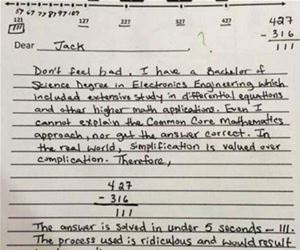 57 67 77 87 97 107
121 127 227 327 427
111
?
427
- 316
111
Dear Jack
Don't feel bad. I have a Bachelor of
Science Degree in Electronics Engineering which
included extensive study in differential equations
and other higher math applications. Even I
cannot explain the Common Core Mathematics
approach, nor get the answer correct. In
the real world, simplification is valued over
complication. Therefore,
427
- 316
111
The answer is solved in under 5 seconds — 111.
The process used is ridiculous and would result